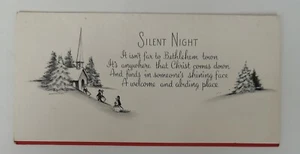 SILENT NIGHT
It isn't far to Bethlehem town
It's anywhere that Christ comes down
And finds in someone's shining face
A welcome and abiding place